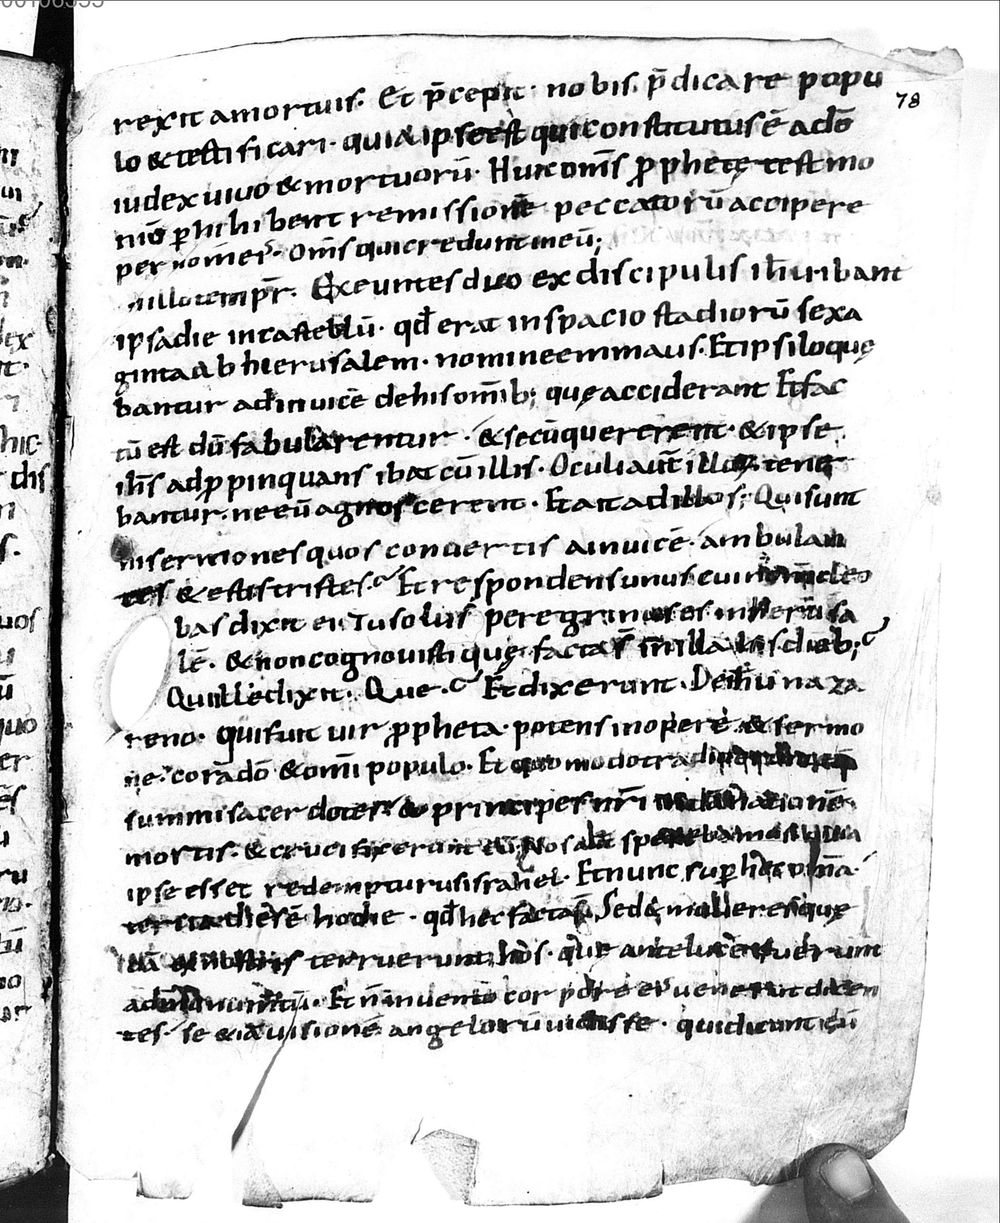 rexit a mortuis. Et p̄cepit nobis p̄dicare popu
78
lo & testificari. quia ipse est qui constitutus ē a dō
iudex uiuo & mortuorū. Huic om̄s p̱phetę testimo
niū phihibent remissionē peccatorū accipere
per nom̄ ei'. Om̄s qui credunt in eū;
in illo tempr̄. Exeuntes duo ex discipulis ih̄u ibant
ipsa die in castellū. qd̄ erat in spacio stadiorū sexa
ginta ab hierusalem. nomine emmaus. Et ipsi loquę
bantur ad inuicē de his om̄ib; quę acciderant Et fac
tū est dū fabularentur. & secū quererent. & ipse
ih̄s adp̱pinquans ibat cū illis. Oculi aūt illoꝝ tene
bantur. ne eū agnoscerent. Et ait ad illos; Qui sunt
hi sermones quos conuertis ad inuicē. ambulan
tes & estis tristes. Et respondens unus cui nom̄ cleo
bas dixit ei Tu solus peregrinus es in hierusa
lē. & non cognouisti quę facta sr̄ in illa his dieb;
Qui ille dixit. Que. Et dixerunt. De ih̄u naza
reno. qui fuit uir p̱pheta. potens in opere & sermo
ne. corā dō & om̄i populo. Et quomodo tradiderunt
summi sacerdotes & principes nr̄i in damnationē
mortis. & crucifixerunt eū. Nos aūt sperabamus quia
ipse esset redempturus israhel. Et nunc sup hęc om̄a.
tercia dies ē hodie. qd̄ hec facta s̄. Sed & mulieres quę
dā ex nostris terruerunt nos. que ante lucē fuerunt
ad monumtū. Et n̄ inuento corpore ei' uenerunt dicen
tes se & iā uisionē angelorū uidisse. qui dicunt eū